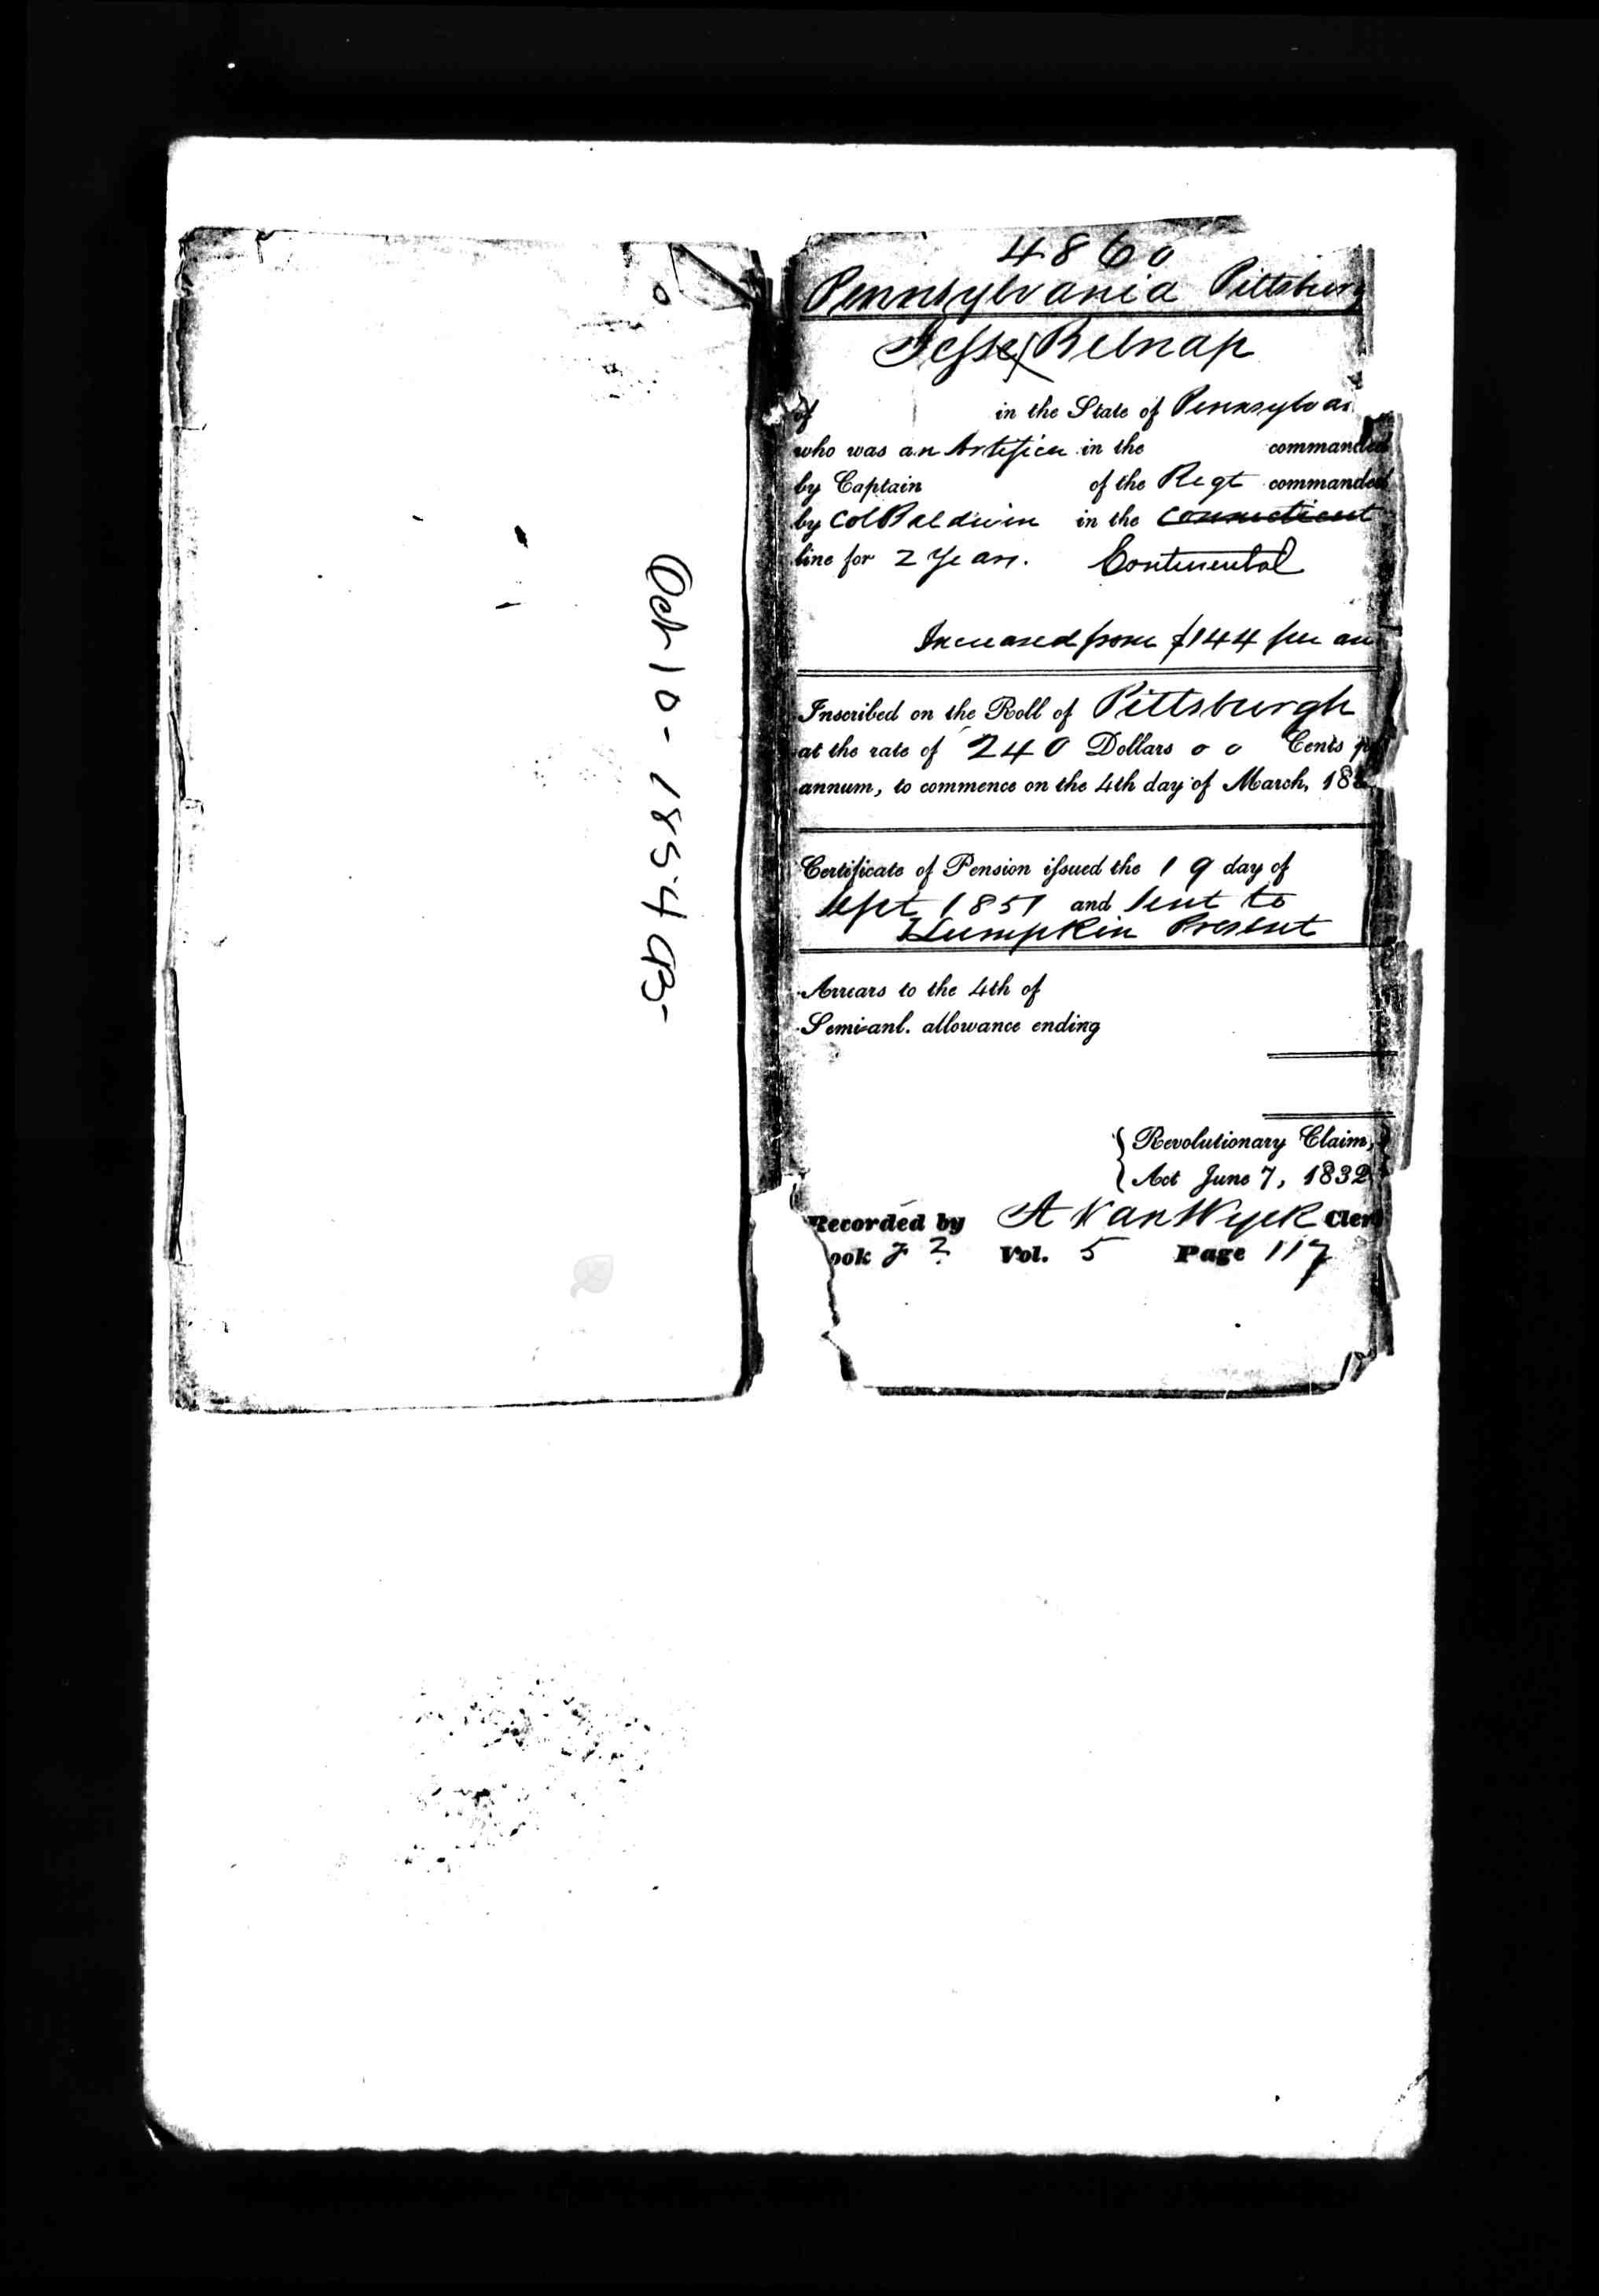 Oct 10 - 1854
4860
Pennsylvania Pittsburg
Jesse Belnap
of in the State of Pennsylvan
who was an Artificer in the commanded
by Captain of the Regt commanded
by Col Baldwin in the Connecticut
line for 2 Years. Continental
Increased from $144 per an
Inscribed on the Roll of Pittsburgh
at the rate of 240 Dollars 00 Cents p
annum, to commence on the 4th day of March, 18
Certificate of Pension issued the 19 day of
Sept 1851 and sent to
Lumpkin Present
Arrears to the 4th of
Semi-anl. allowance ending
{ Revolutionary Claim, }
{ Act June 7, 1832 }
Recorded by A Van Wyck Cler
ook 2 Vol. 5 Page 117